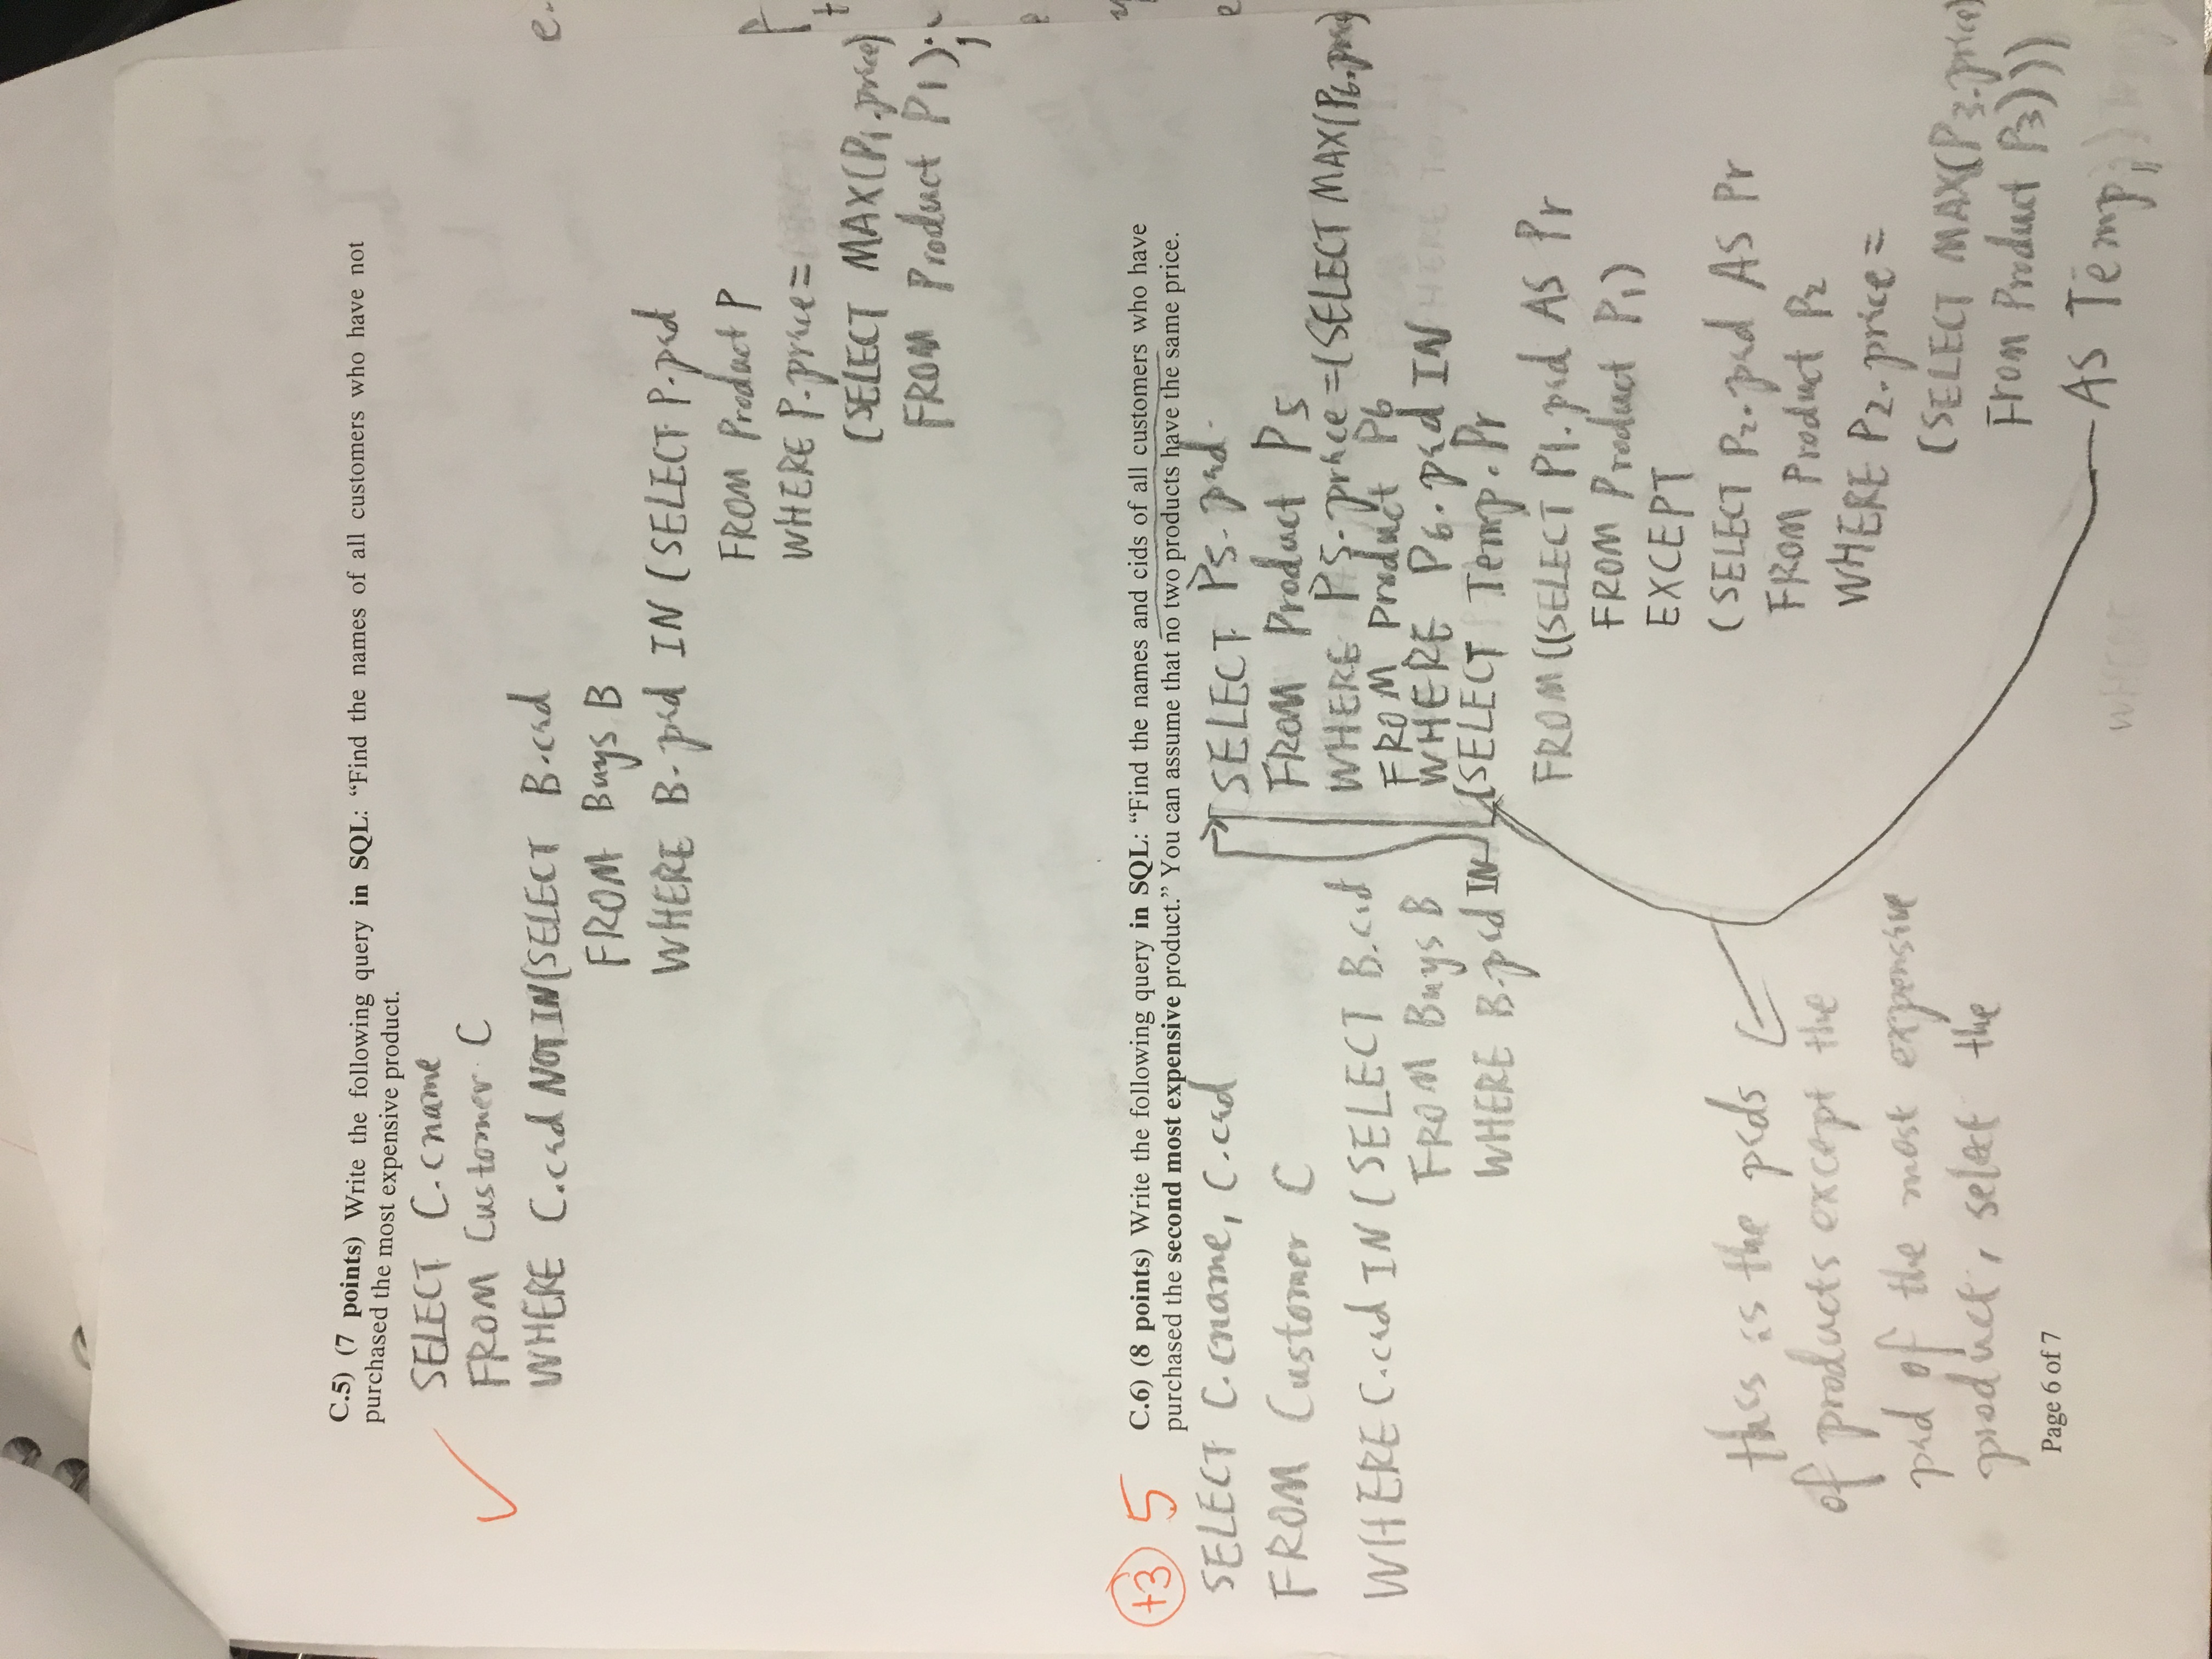 C.5) (7 points) Write the following query in SQL: “Find the names of all customers who have not
purchased the most expensive product.
SELECT C.cname
FROM Customer C
WHERE C.cid NOT IN (SELECT B.cid
FROM Buys B
WHERE B.pid IN (SELECT P.pid
FROM Product P
WHERE P.price =
(SELECT MAX(P1.price)
FROM Product P1);
+3 5
C.6) (8 points) Write the following query in SQL: “Find the names and cids of all customers who have
purchased the second most expensive product.” You can assume that no two products have the same price.
SELECT C.cname, C.cid
FROM Customer C
WHERE C.cid IN (SELECT B.cid
FROM Buys B
WHERE B.pid IN
SELECT P5.pid
FROM Product P5
WHERE P5.price = (SELECT MAX(P6.price)
FROM Product P6
WHERE P6.pid IN
(SELECT Temp.Pr
FROM ((SELECT P1.pid AS Pr
FROM Product P1)
EXCEPT
(SELECT P2.pid AS Pr
FROM Product P2
WHERE P2.price =
(SELECT MAX(P3.price)
From Product P3)))
AS Temp;
this is the pids
of products except the
pid of the most expensive
product, select the
Page 6 of 7